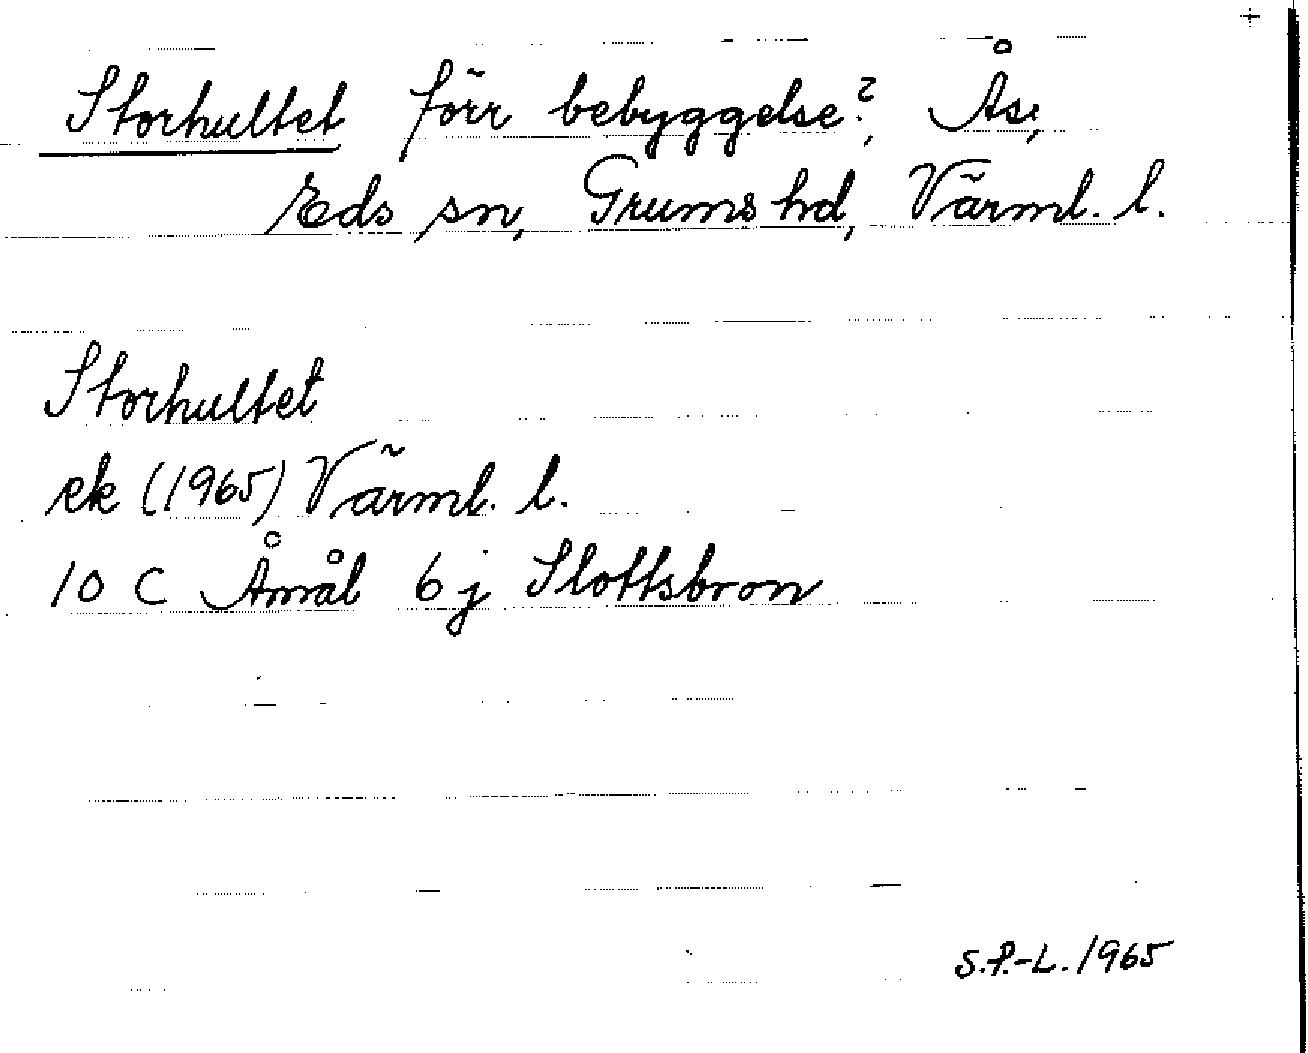 Storhultet förr bebyggelse?, Ås,
Eds sn, Grums hd, Värml. l.
Storhultet
ek (1965) Värml. l.
10 C Åmål 6 j Slottsbron
S.P.-L. 1965